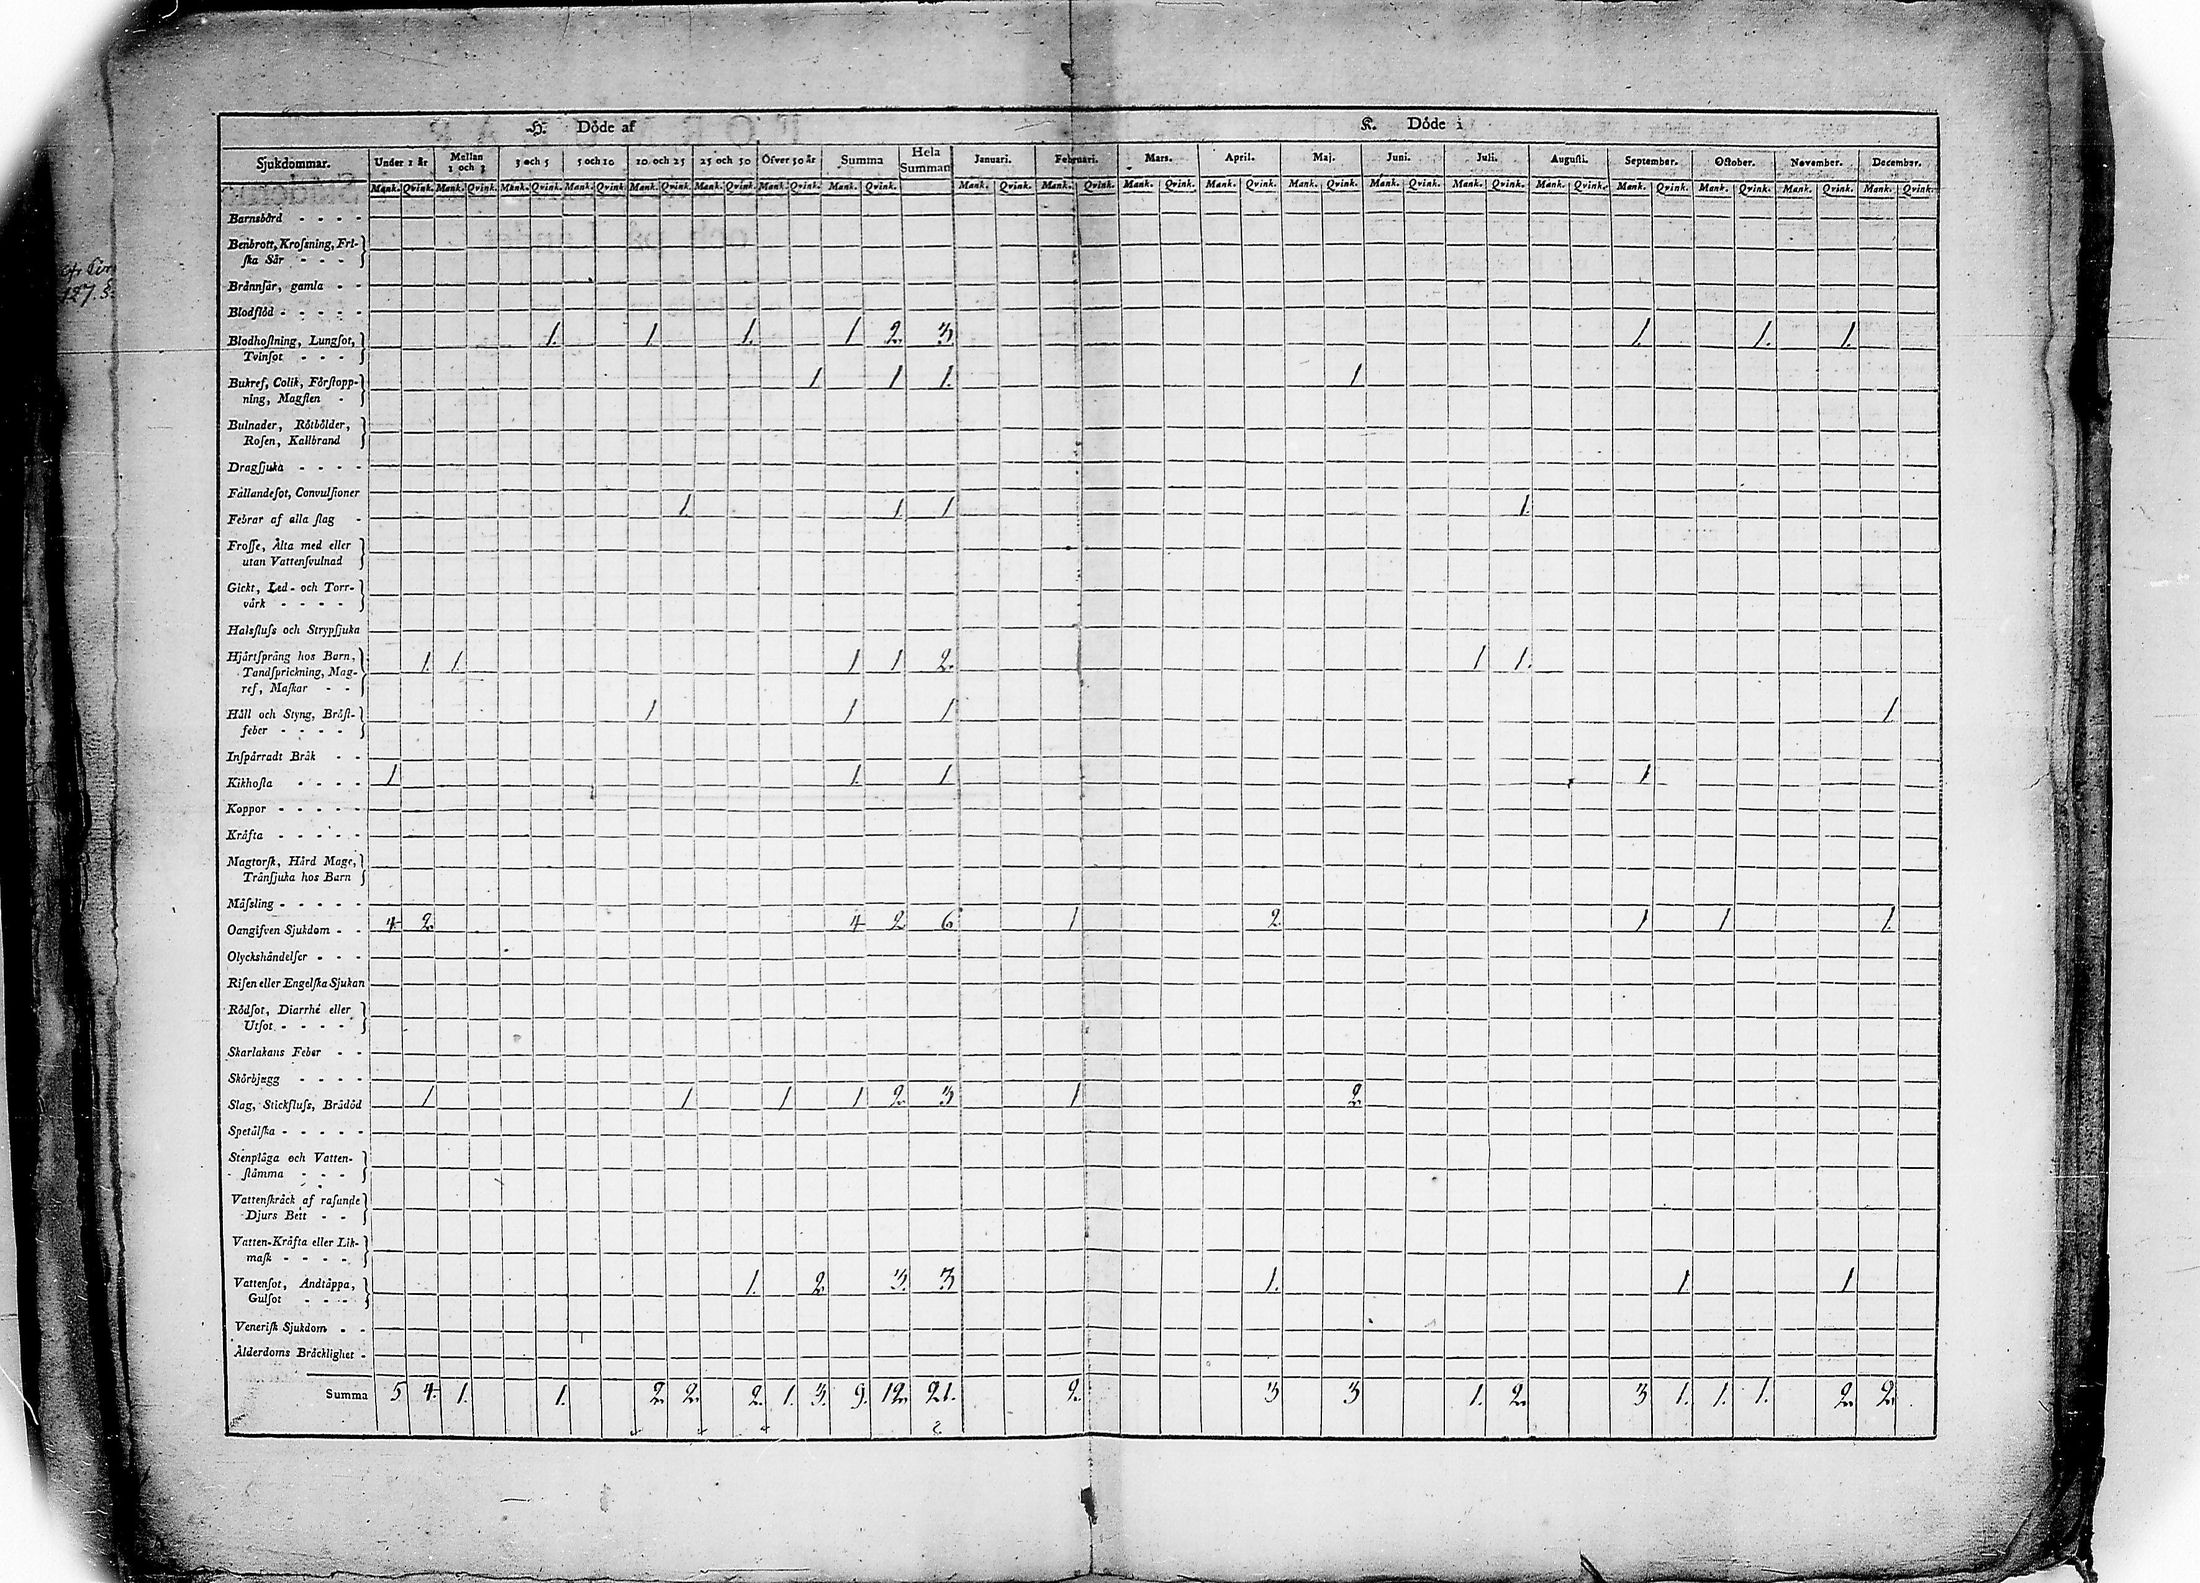 H. Döde af K. Döde i
Sjukdommar. Under 1 år Mellan 1 och 3 3 och 5 5 och 10 10 och 25 25 och 50 Öfver 50 år Summa Hela Summan Januari. Februari. Mars. April. Maj. Juni. Juli. Augusti. September. October. November. December.
Mank. Qvink. Mank. Qvink. Mank. Qvink. Mank. Qvink. Mank. Qvink. Mank. Qvink. Mank. Qvink. Mank. Qvink. Mank. Qvink. Mank. Qvink. Mank. Qvink. Mank. Qvink. Mank. Qvink. Mank. Qvink. Mank. Qvink. Mank. Qvink. Mank. Qvink. Mank. Qvink. Mank. Qvink. Mank. Qvink.
Barnsbörd - - - -
Benbrott, Krosning, Fri-
ska Sår - - -
127. §.
Brännsår, gamla - -
Blodflöd - - - - -
Blodhostning, Lungsot, 1. 1. 1. 1 2. 3 1. 1. 1.
Tvinsot - - -
Bukref, Colik, Förstopp- 1 1 1. 1
ning, Magsten -
Bulnader, Rötbölder,
Rosen, Kallbrand
Dragsjuka - - - -
Fallandesot, Convulsioner
Febrar af alla slag - 1. 1. 1 1.
Frosse, Älta med eller
utan Vattensvulnad
Gickt, Led- och Torr-
värk - - - -
Halsfluss och Strypsjuka
Hjärtspräng hos Barn, 1. 1. 1 1 2. 1 1.
Tandsprickning, Mag-
ref, Maskar - -
Håll och Styng, Bröst- 1 1 1 1
feber - - - -
Inspärradt Bråk - -
Kikhosta - - - - 1 1. 1 1
Koppor - - - - -
Kräfta - - - - -
Magtorsk, Hård Mage,
Tränsjuka hos Barn
Mässling - - - - -
Oangifven Sjukdom - - 4 2. 4 2 6 1 2. 1 1 1.
Olyckshändelser - - -
Risen eller Engelska Sjukan
Rödsot, Diarrhé eller
Utsot - - - -
Skarlakans Feber - -
Skörbjugg - - - -
Slag, Stickfluss, Brådöd 1 1 1 1 2. 3 1 2.
Spetälska - - - - -
Stenplåga och Vatten-
stämma - - -
Vattenskräck af rasande
Djurs Bett - -
Vatten-Kräfta eller Lik-
mask - - - -
Vattensot, Andtäppa, 1. 2 3. 3 1. 1. 1
Gulsot - - -
Venerisk Sjukdom - -
Ålderdoms Bräcklighet -
Summa 5 4. 1. 1. 2. 2. 2. 1. 3. 9. 12. 21. 2. 3 3 1. 2. 3 1. 1. 1. 2. 2.